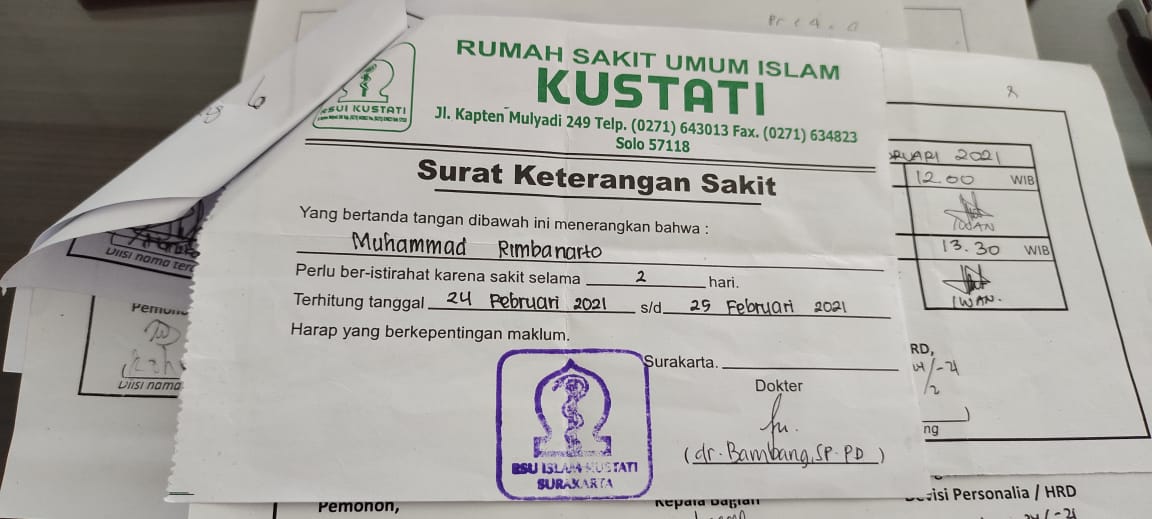 RUMAH SAKIT UMUM ISLAM
KUSTATI
Jl. Kapten Mulyadi 249 Telp. (0271) 643013 Fax. (0271) 634823
Solo 57118
RSUI KUSTATI
Surat Keterangan Sakit
Yang bertanda tangan dibawah ini menerangkan bahwa :
Muhammad Rimbanarto
Perlu ber-istirahat karena sakit selama 2 hari.
Terhitung tanggal 24 Pebruari 2021 s/d 25 Februari 2021
Harap yang berkepentingan maklum.
Surakarta.
Dokter
(dr. Bambang, SP. PD)
RSU ISLAM KUSTATI
SURAKARTA
RUARI 2021
12.00 WIB
IWAN
13.30 WIB
IWAN.
RD,
ng
Diisi nama
Diisi nama
Pemohon,
Kepala Bagian
visi Personalia / HRD